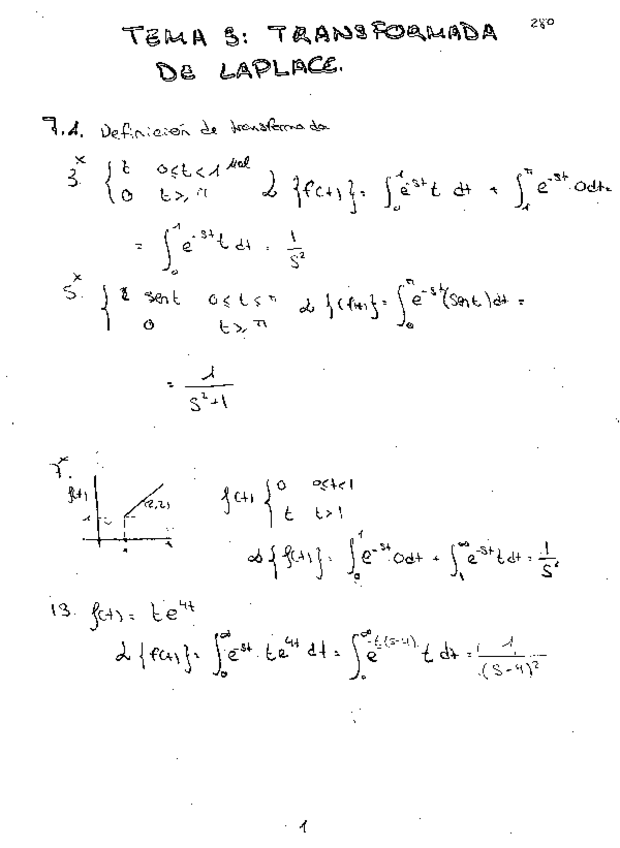 280
TEMA 3: TRANSFORMADA
DE LAPLACE.
7.1. Definición de transformada
3.* { t 0≤t<1 / 0 t≥π } ℒ{f(t)} = ∫₀¹ e^-st t dt + ∫₁^π e^-st 0dt =
= ∫₀¹ e^-st t dt = 1/S²
5.* { sent 0≤t≤π / 0 t≥π } ℒ{f(t)} = ∫₀^π e^-st (sent)dt =
= 1/(S²+1)
7.*
f(t) 1 (2,2) 1
f(t) { 0 0≤t<1 / t t>1 }
ℒ{f(t)} = ∫₀¹ e^-st 0dt + ∫₁^∞ e^-st t dt = 1/S²
13. f(t) = te^4t
ℒ{f(t)} = ∫₀^∞ e^-st · te^4t dt = ∫₀^∞ e^-t(s-4) t dt = 1/(S-4)²
1